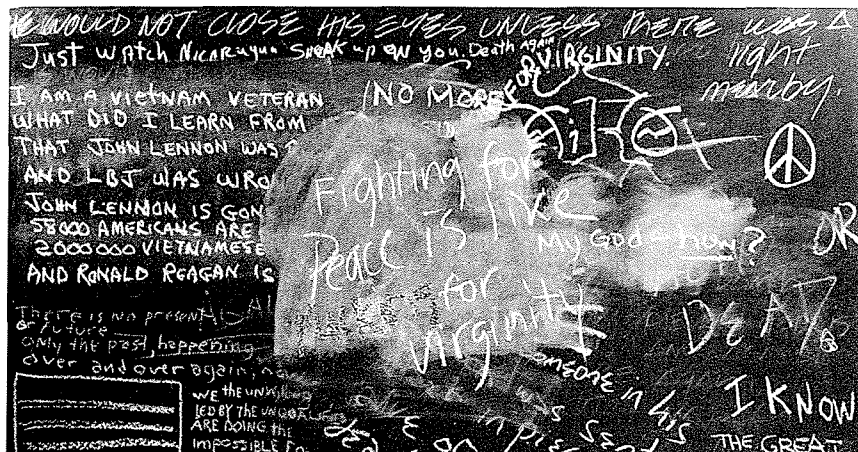 HE WOULD NOT CLOSE HIS EYES UNLESS THERE WAS A
light
nearby.
Just WATCH NICARAGUA SNEAK up ON YOU. Death AGAIN
FOR VIRGINITY.
I AM A VIETNAM VETERAN
WHAT DID I LEARN FROM
THAT JOHN LENNON WAS
AND LBJ WAS WRO
JOHN LENNON IS GON
58000 AMERICANS ARE
2000000 VIETNAMESE
AND RONALD REAGAN IS
NO MORE
Fighting for
Peace is like
for
virginity
My GOD - how?
OR
DEAD
There is no present
or future
only the past, happening
over and over again,
WE THE UNWILLING
LED BY THE
ARE DOING THE
IMPOSSIBLE FO
omeone in his
I KNOW
THE GREAT